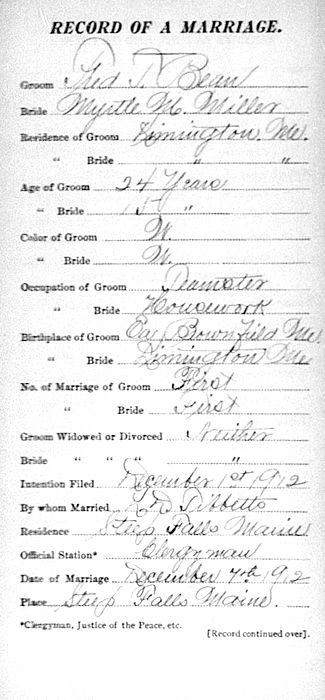 RECORD OF A MARRIAGE.
Groom Fred T. Bean
Bride Myrtle M. Miller
Residence of Groom Limington. Me.
" Bride " "
Age of Groom 24 Years
" Bride 15 "
Color of Groom W.
" Bride W.
Occupation of Groom Teamster
" Bride Housework
Birthplace of Groom Ea / Brownfield Me.
" Bride Limington Me
No. of Marriage of Groom First
" Bride First
Groom Widowed or Divorced Neither
Bride " " " "
Intention Filed December 1st 1912
By whom Married Tibbetts
Residence Steep Falls Maine
Official Station* Clergyman
Date of Marriage December 7th 1912
Place Steep Falls Maine.
*Clergyman, Justice of the Peace, etc.
[Record continued over].